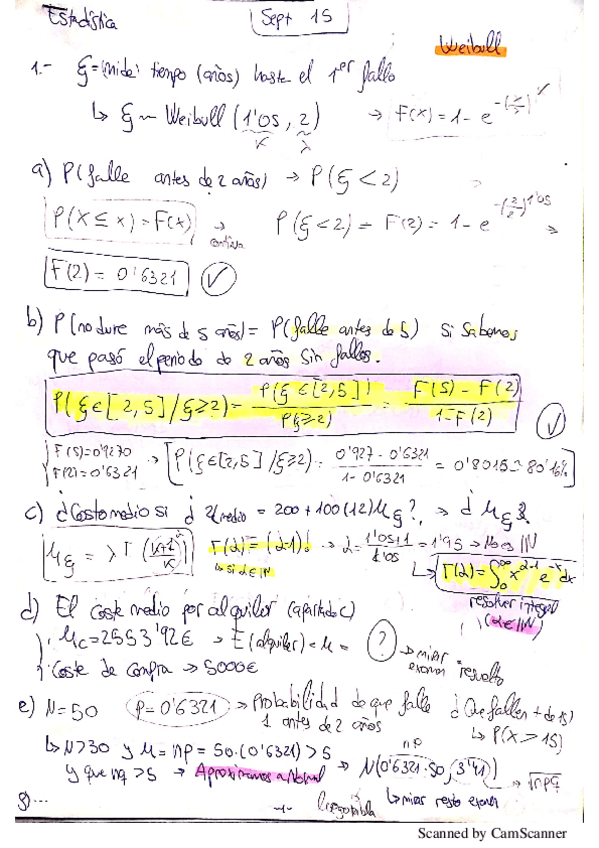 Estadística
Sept 15
Weibull
1.- ξ = "mide" tiempo (años) hasta el 1er fallo
↳ ξ ~ Weibull (1'05, 2) → F(x) = 1 - e^-(x/λ)^κ
κ λ
a) P(falle antes de 2 años) → P(ξ < 2)
P(X ≤ x) = F(x) → continua P(ξ < 2) = F(2) = 1 - e^-(2/2)^1'05 →
F(2) = 0'6321 ✓
b) P(no dure más de 5 años) = P(falle antes de 5) si sabemos
que pasó el periodo de 2 años sin fallos.
P(ξ∈[2,5] / ξ≥2) = P(ξ∈[2,5]) / P(ξ≥2) = F(5) - F(2) / 1 - F(2) ✓
F(5) = 0'9270
F(2) = 0'6321 → [P(ξ∈[2,5] / ξ≥2) = 0'927 - 0'6321 / 1 - 0'6321 = 0'8015 = 80'16%]
c) ¿Costo medio si ¿ medio = 200 + 100(12)μξ?, → ¿μξ?
μξ = λΓ(κ+1/κ) Γ(α) = (α-1)! → α = 1'05+1 / 1'05 = 1'95 → No es ℕ
↳ si α∈ℕ ↳ Γ(α) = ∫₀^∞ x^α-1 e^-x dx
resolver integral
(α∉ℕ)
d) El coste medio por alquiler (apartado c)
μc = 2553'92€ → E(alquiler) = μ = ? → mirar examen resuelto
Coste de compra → 5000€
e) N = 50 P = 0'6321 → Probabilidad de que falle 1 antes de 2 años ¿Que fallen + de 15?
↳ P(X > 15)
↳ N>30 y μ = np = 50·(0'6321) > 5
y que nq > 5 → Aproximamos a Normal → N(0'6321·50, 3'41) → √npq
np
↳ mirar resto examen
-1-
Scanned by CamScanner